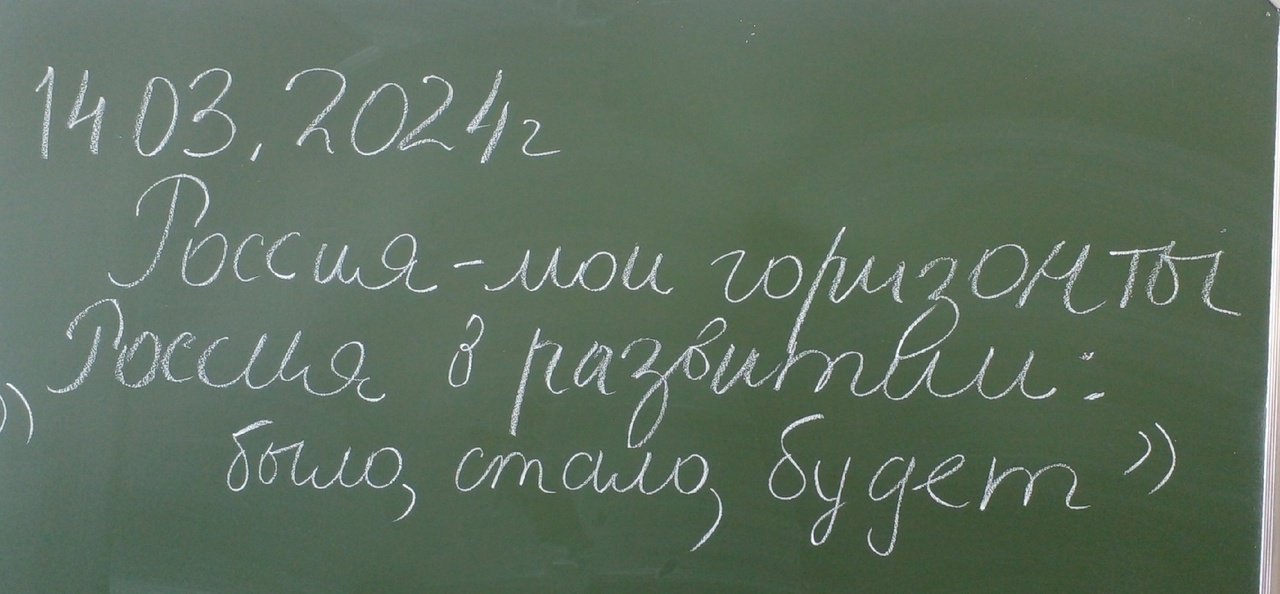 14 03. 2024г
Россия - мои горизонты
Россия в развитии:
)) было, стало, будет ))